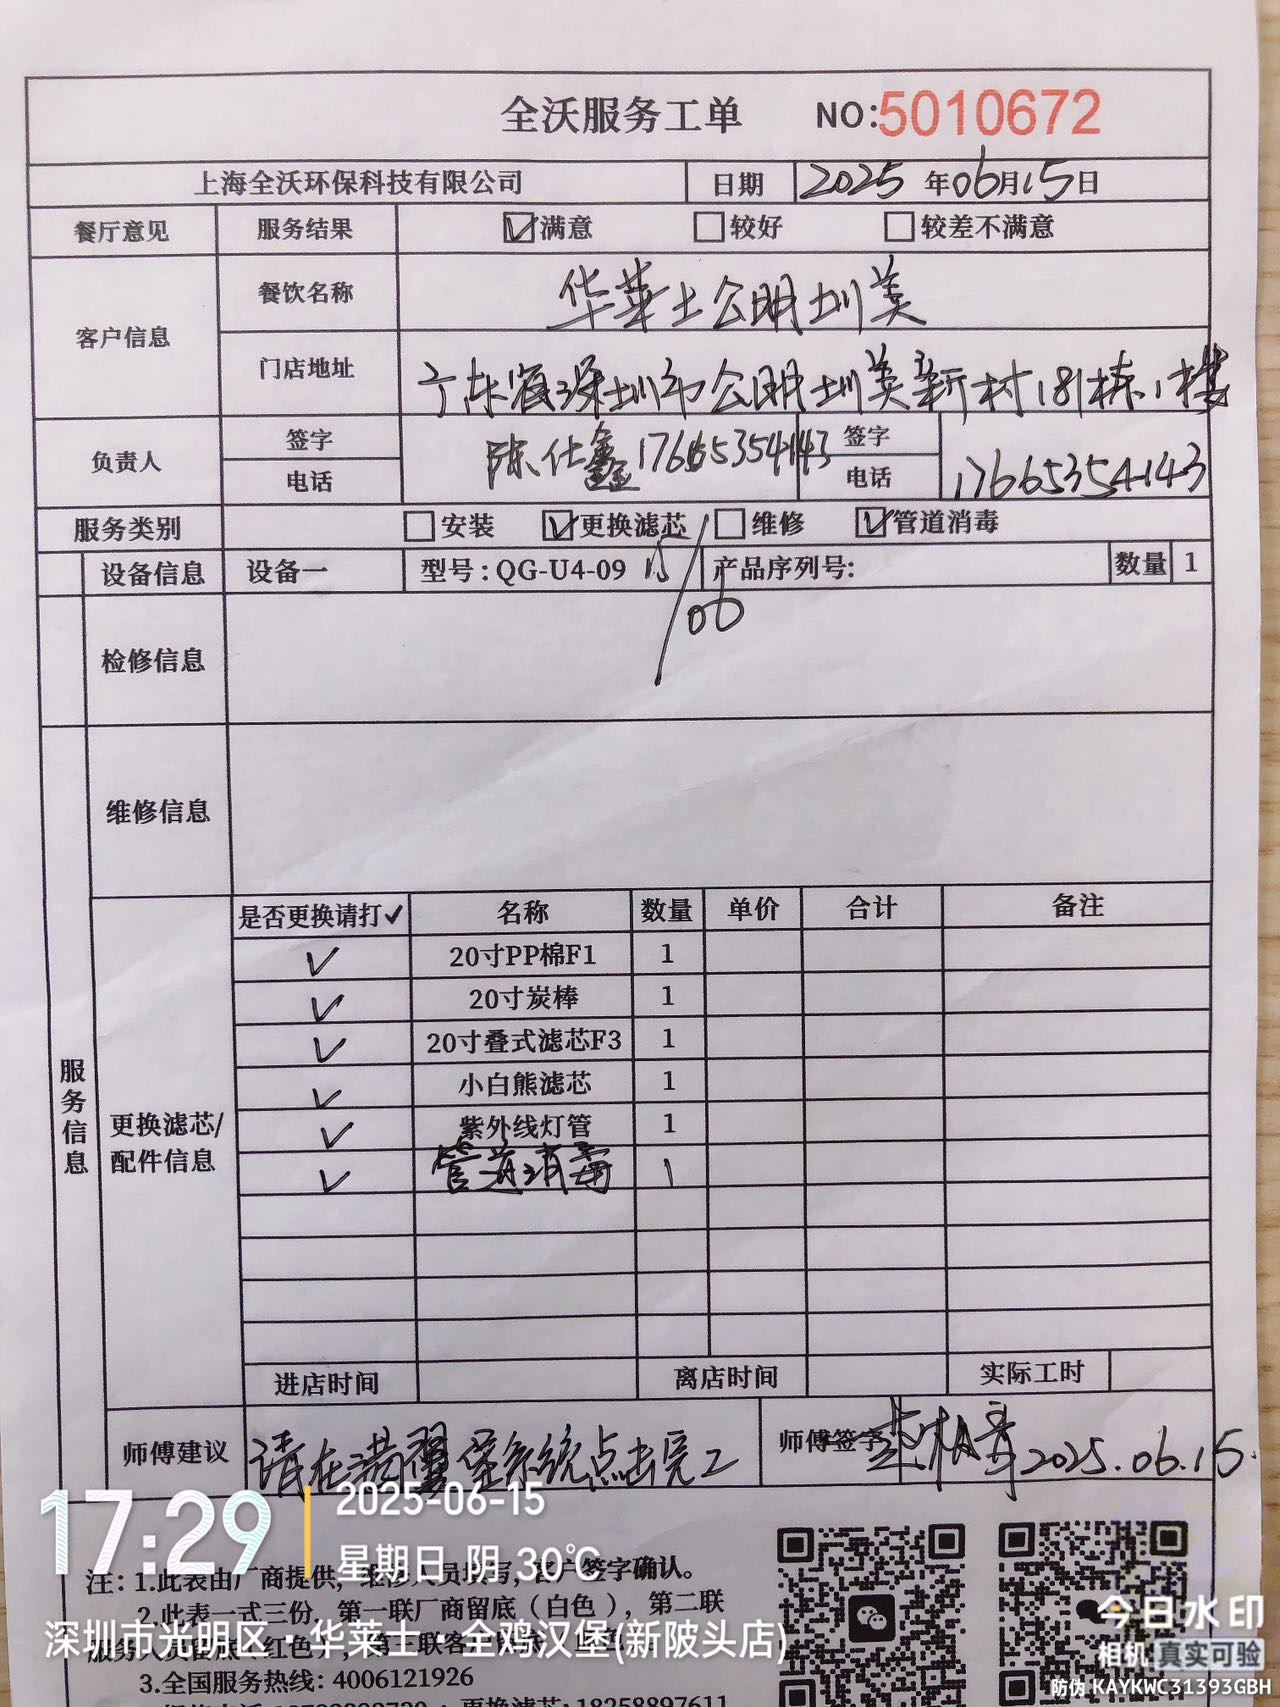 全沃服务工单 NO:5010672
上海全沃环保科技有限公司 日期 2025年06月15日
餐厅意见 服务结果 ☑满意 □较好 □较差不满意
客户信息 餐饮名称 华莱士公明圳美
门店地址 广东省深圳市公明圳美新村181栋1楼
负责人 签字 电话 陈仕鑫17665354143 签字 电话 17665354143
服务类别 □安装 ☑更换滤芯 □维修 ☑管道消毒
设备信息 设备一 型号:QG-U4-09 15/06 产品序列号: 数量 1
检修信息
维修信息
服务信息
更换滤芯/配件信息
是否更换请打✓ 名称 数量 单价 合计 备注
✓ 20寸PP棉F1 1
✓ 20寸炭棒 1
✓ 20寸叠式滤芯F3 1
✓ 小白熊滤芯 1
✓ 紫外线灯管 1
✓ 管道消毒 1
进店时间 离店时间 实际工时
师傅建议 请在满翼堡系统点击完工 师傅签字 2025.06.15.
17:29 2025-06-15
星期日 阴 30℃
注: 1.此表由厂商提供, 维修人员填写, 客户签字确认。
2.此表一式三份, 第一联厂商留底(白色), 第二联
深圳市光明区·华莱士·全鸡汉堡(新陂头店)
3.全国服务热线: 4006121926
更换滤芯: 18258897611
今日水印
相机 真实可验
防伪 KAYKWC31393GBH